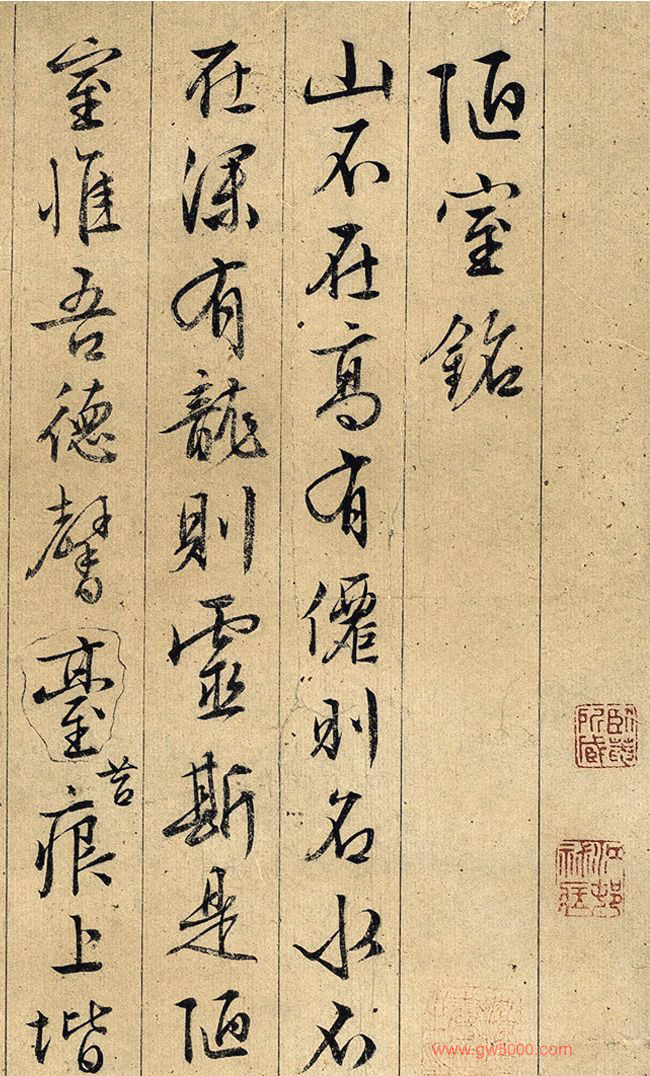 陋室銘
山不在高有僊則名水不
在深有龍則靈斯是陋
室惟吾德馨臺痕上堦
苔
www.gw5000.com